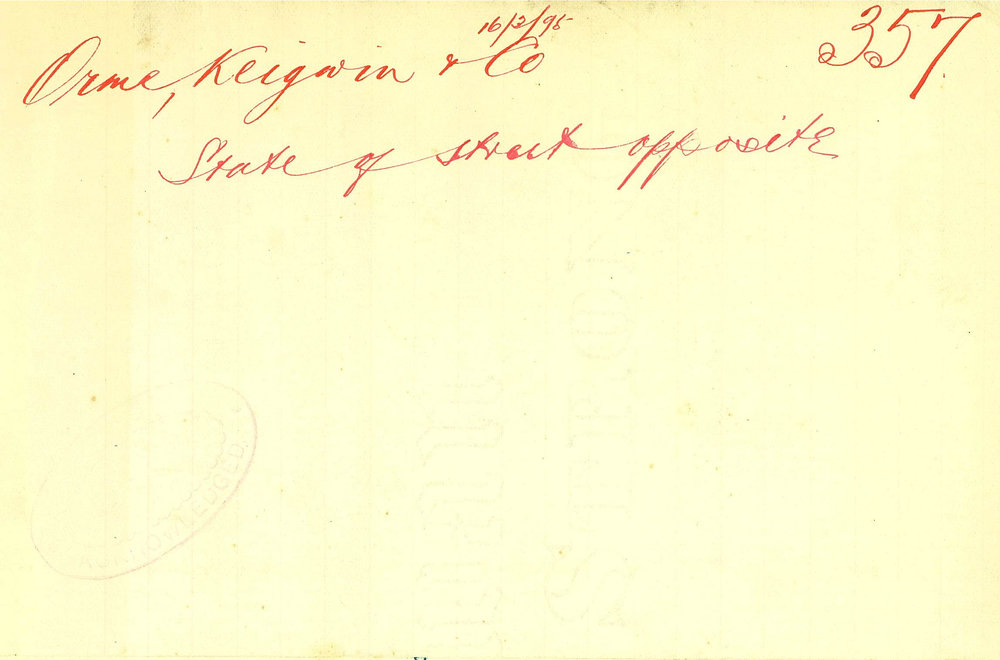 16/2/95
357
Orme, Keigwin & Co
State of street opposite
ACKNOWLEDGED.